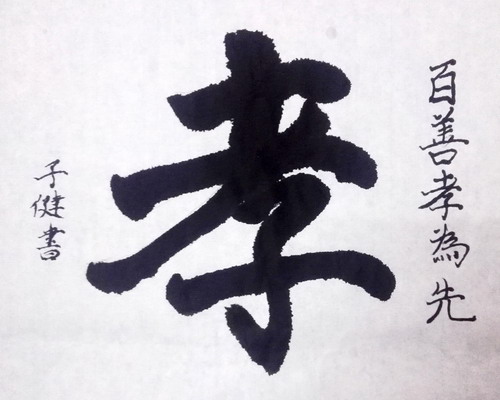 百善孝為先
孝
子健書